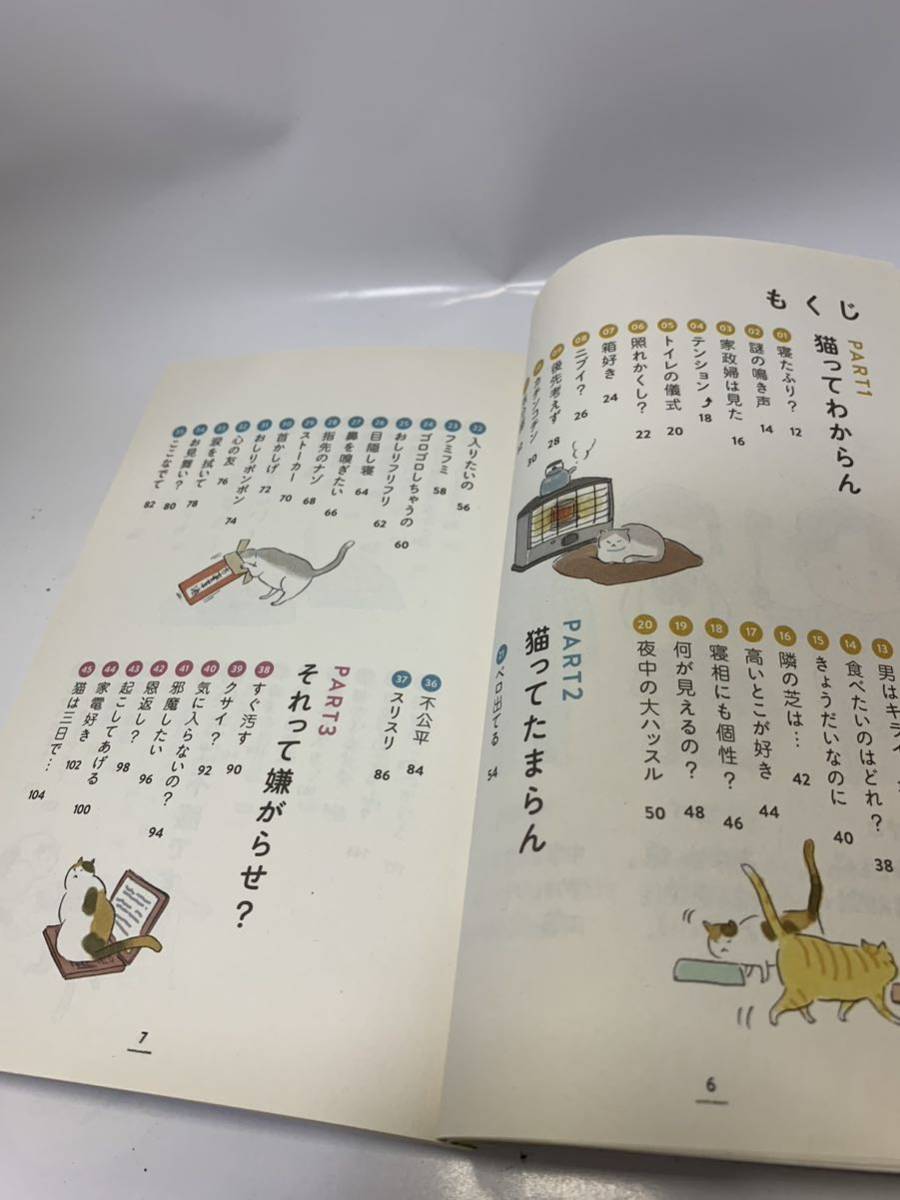 もくじ
PART1
猫ってわからん
01 寝たふり? 12
02 謎の鳴き声 14
03 家政婦は見た 16
04 テンション⤴ 18
05 トイレの儀式 20
06 照れかくし? 22
07 箱好き 24
08 ニブイ? 26
09 後先考えず 28
カチンコチン 30
13 男はキライ
14 食べたいのはどれ? 38
15 きょうだいなのに 40
16 隣の芝は… 42
17 高いとこが好き 44
18 寝相にも個性? 46
19 何が見えるの? 48
20 夜中の大ハッスル 50
PART2
猫ってたまらん
21 ベロ出てる 54
6
22 入りたいの 56
23 フミフミ 58
24 ゴロゴロしちゃうの 60
25 おしりフリフリ 62
26 目隠し寝 64
27 鼻を嗅ぎたい 66
28 指先のナゾ 68
29 ストーカー 70
30 首かしげ 72
31 おしりポンポン 74
32 心の友 76
33 涙を拭いて 78
34 お見舞い? 80
35 ここなでて 82
36 不公平 84
37 スリスリ 86
PART3
それって嫌がらせ?
38 すぐ汚す 90
39 クサイ? 92
40 気に入らないの? 94
41 邪魔したい 96
42 恩返し? 98
43 起こしてあげる 100
44 家電好き 102
45 猫は三日で… 104
7